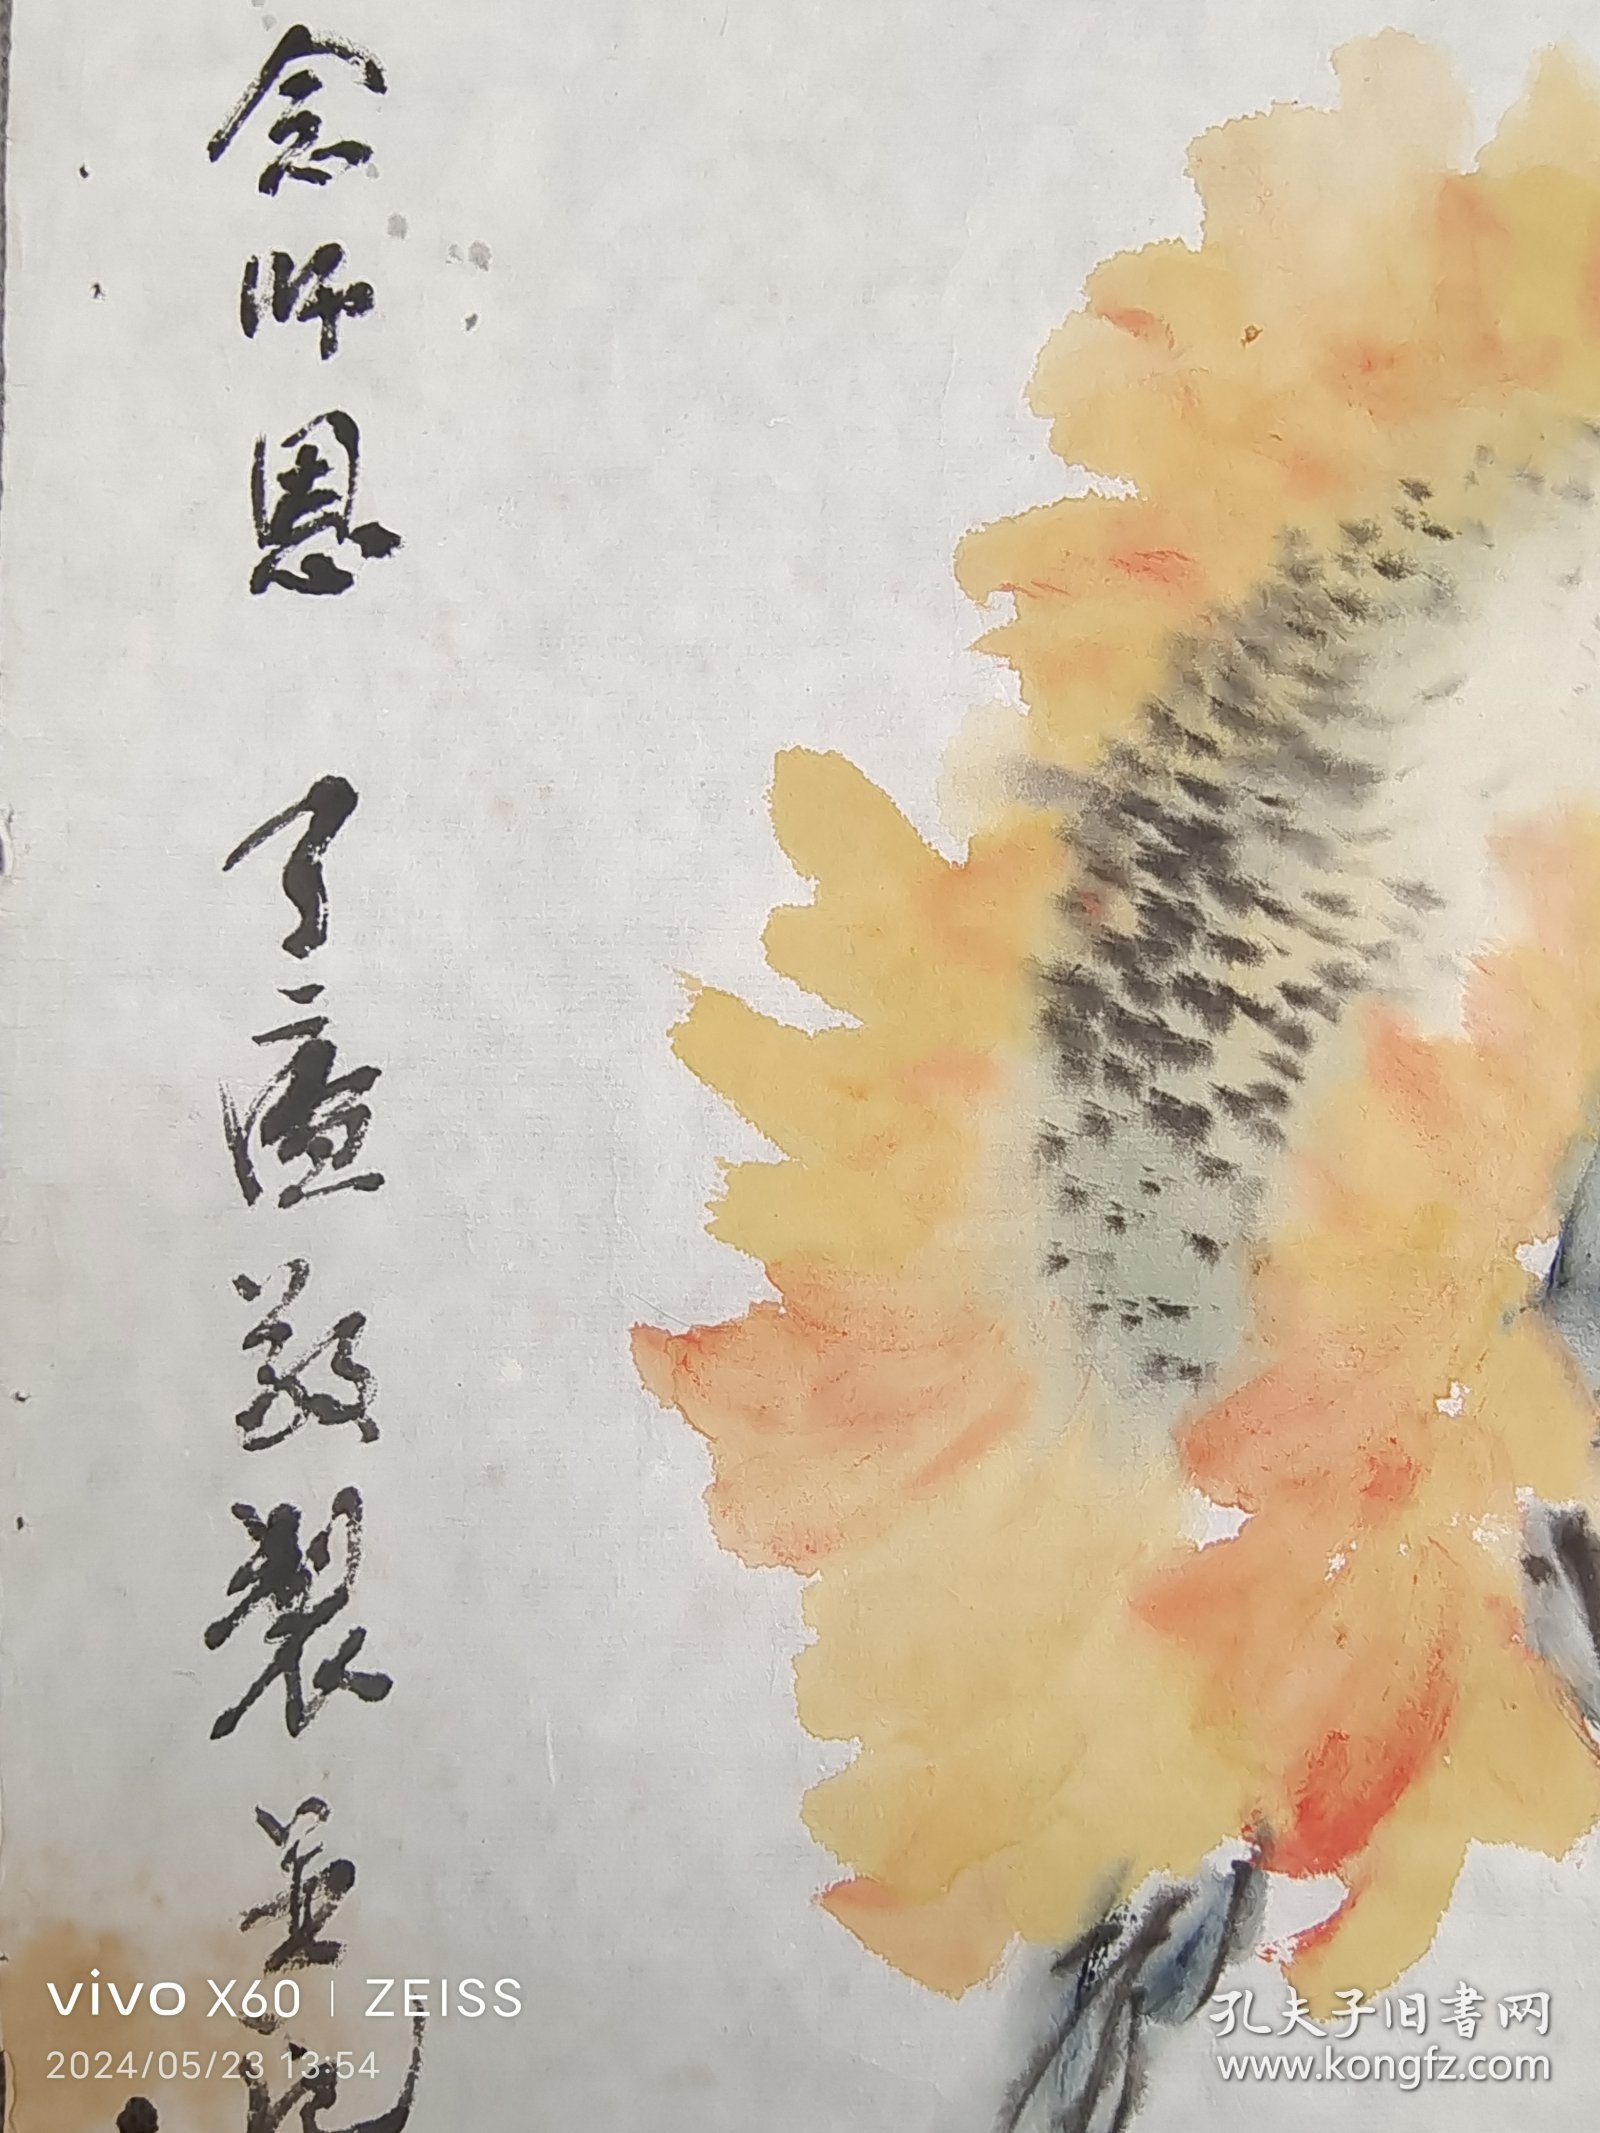 念师恩 了庐敬製并记
vivo X60 | ZEISS
2024/05/23 13:54
孔夫子旧书网
www.kongfz.com